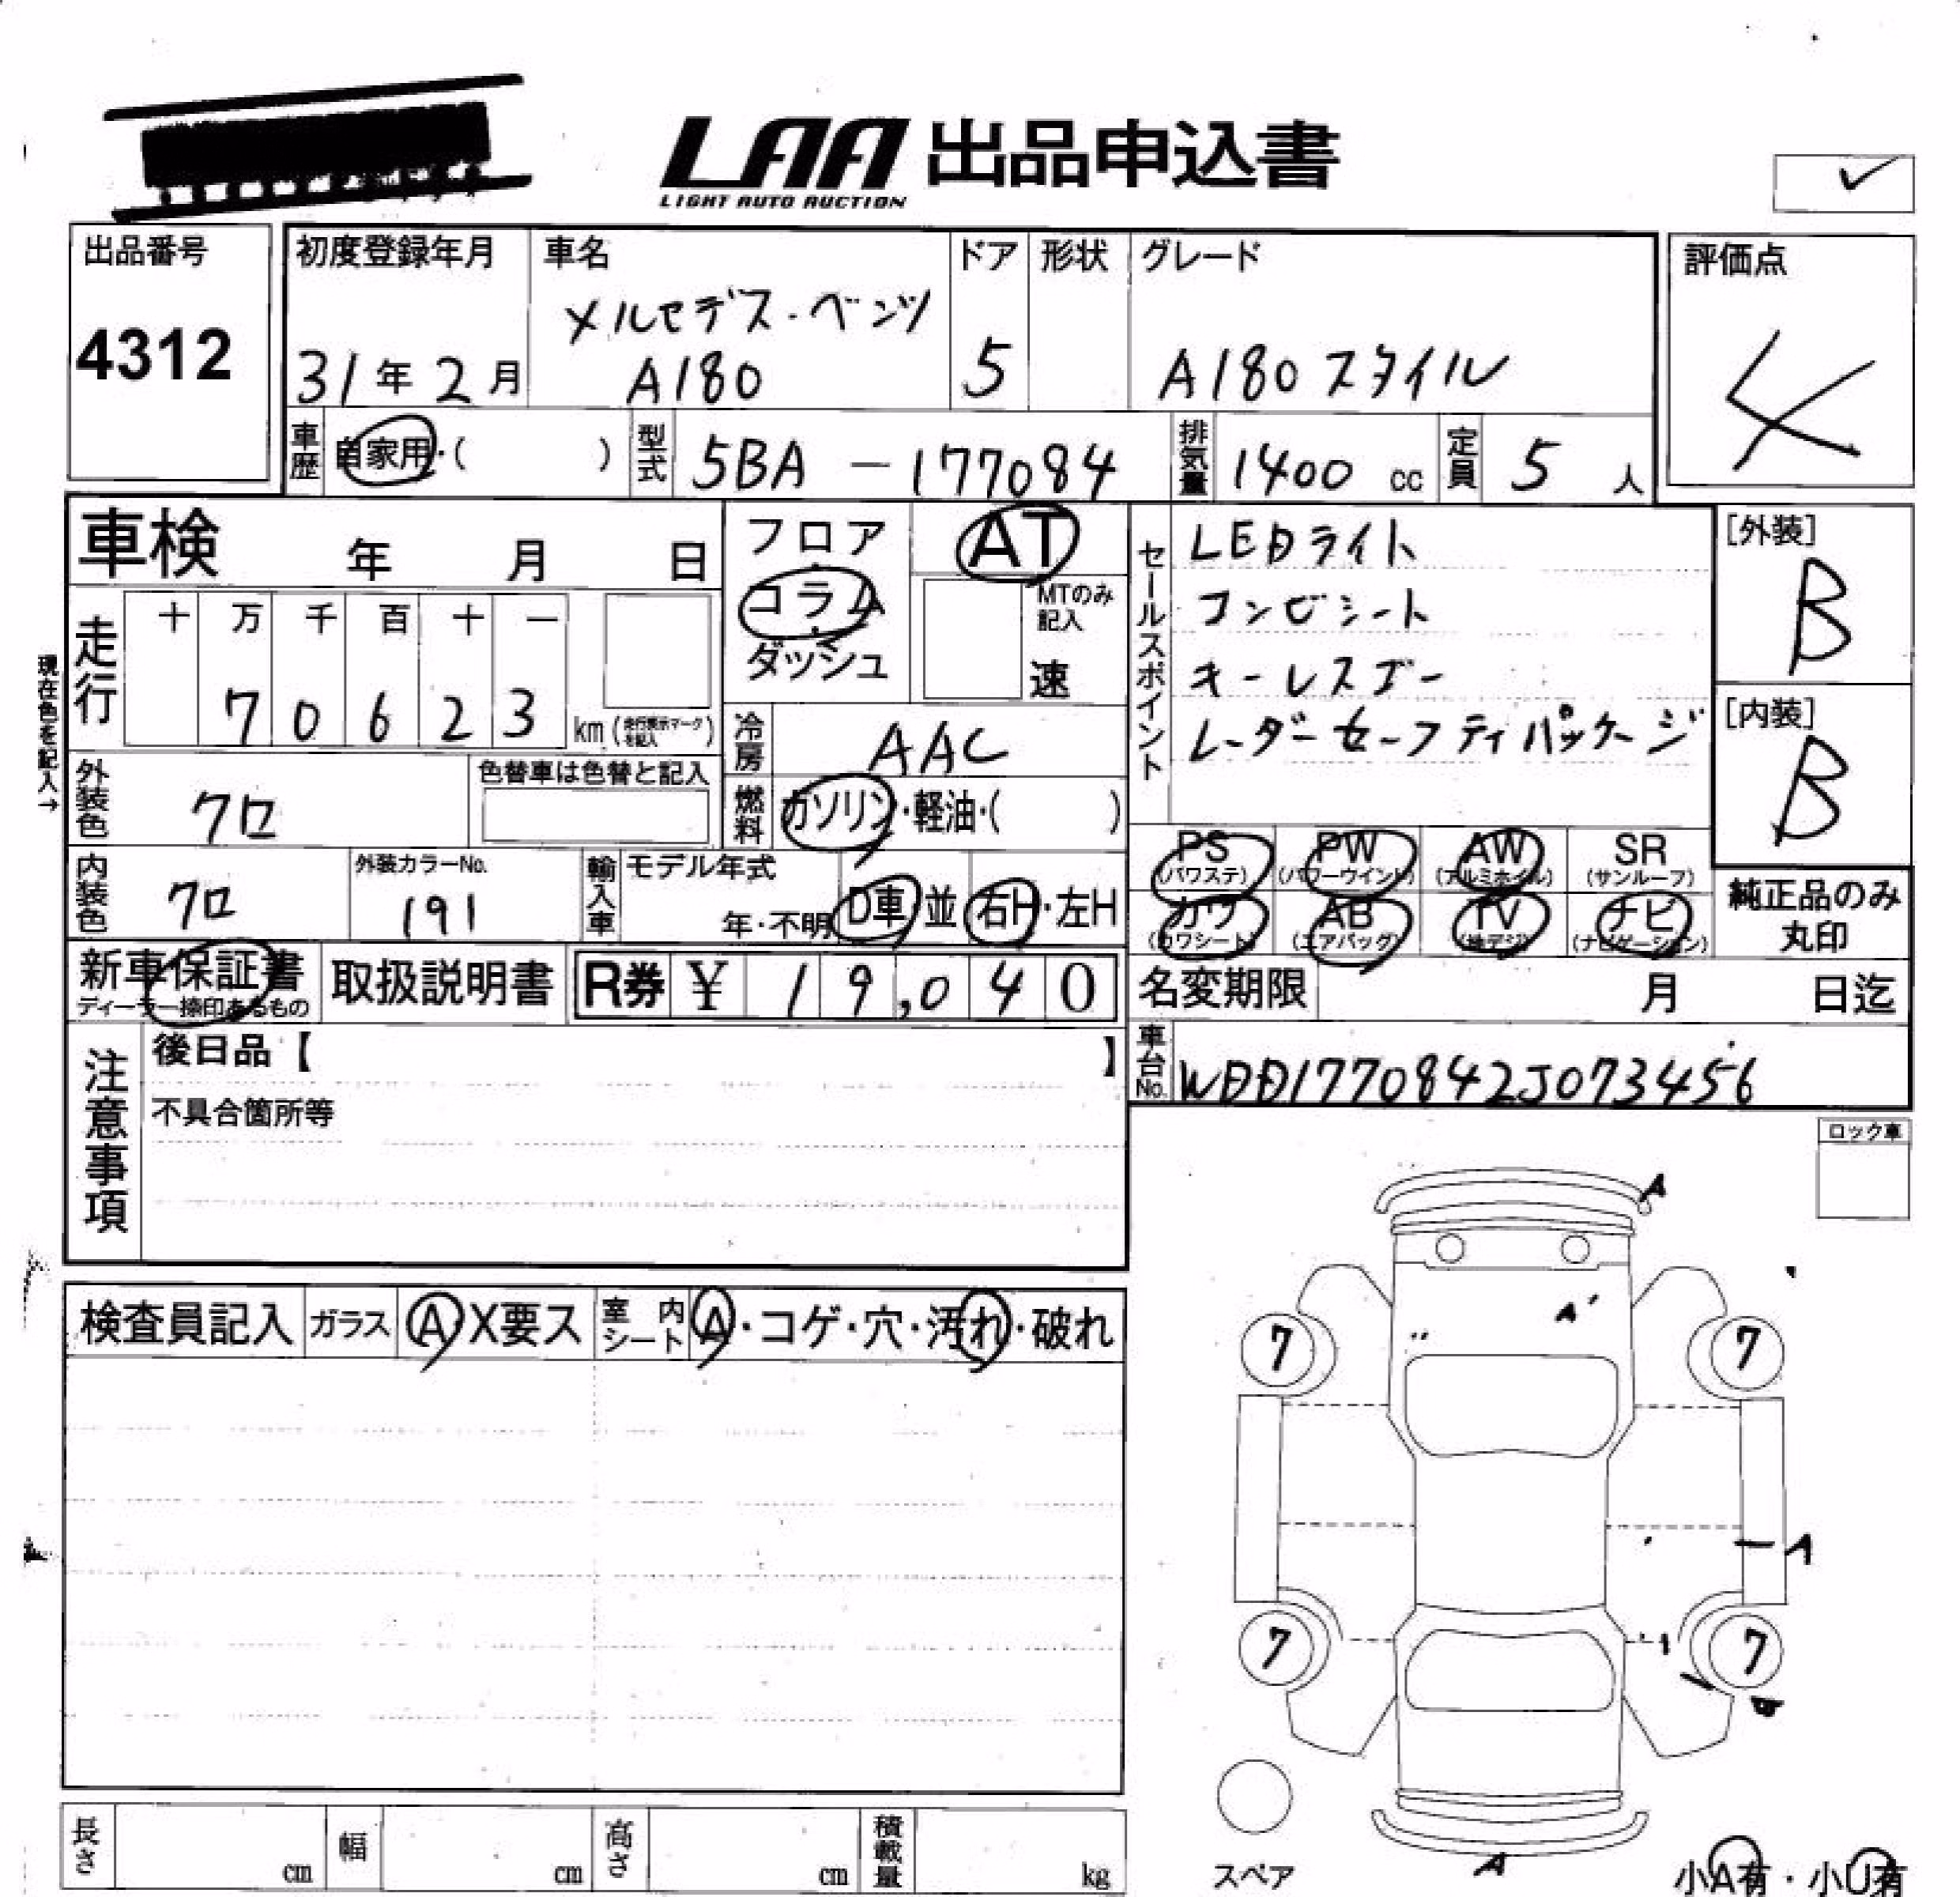 LAA 出品申込書
LIGHT AUTO AUCTION
出品番号
4312
初度登録年月
31年2月
車名
メルセデス・ベンツ
A180
ドア
5
形状
グレード
A180 スタイル
評価点
4
車歴
自家用・( )
型式
5BA-177084
排気量
1400 cc
定員
5 人
車検 年 月 日
走行
十 万 千 百 十 一
7 0 6 2 3 km (走行表示マークを記入)
現在色を記入→
フロア
コラム
ダッシュ
AT
MTのみ
記入
速
冷房
AAC
燃料
ガソリン・軽油・( )
セールスポイント
LEDライト
コンビシート
キーレスゴー
レーダーセーフティパッケージ
[外装]
B
[内装]
B
外装色
クロ
色替車は色替と記入
内装色
クロ
外装カラーNo.
191
輸入車
モデル年式
年・不明
D車・並
右H・左H
PS
(パワステ)
PW
(パワーウインド)
AW
(アルミホイル)
SR
(サンルーフ)
カワ
(カワシート)
AB
(エアバッグ)
TV
(地デジ)
ナビ
(ナビゲーション)
純正品のみ
丸印
新車保証書
ディーラー捺印あるもの
取扱説明書
R券 ¥ 19,040
名変期限 月 日迄
車台No.
WDD1770842J073456
注意事項
後日品【 】
不具合箇所等
ロック車
検査員記入
ガラス
A X要ス
室内シート
A・コゲ・穴・汚れ・破れ
A
A'
7
7
7
7
A
スペア
小A有・小U有
長さ cm
幅 cm
高さ cm
積載量 kg